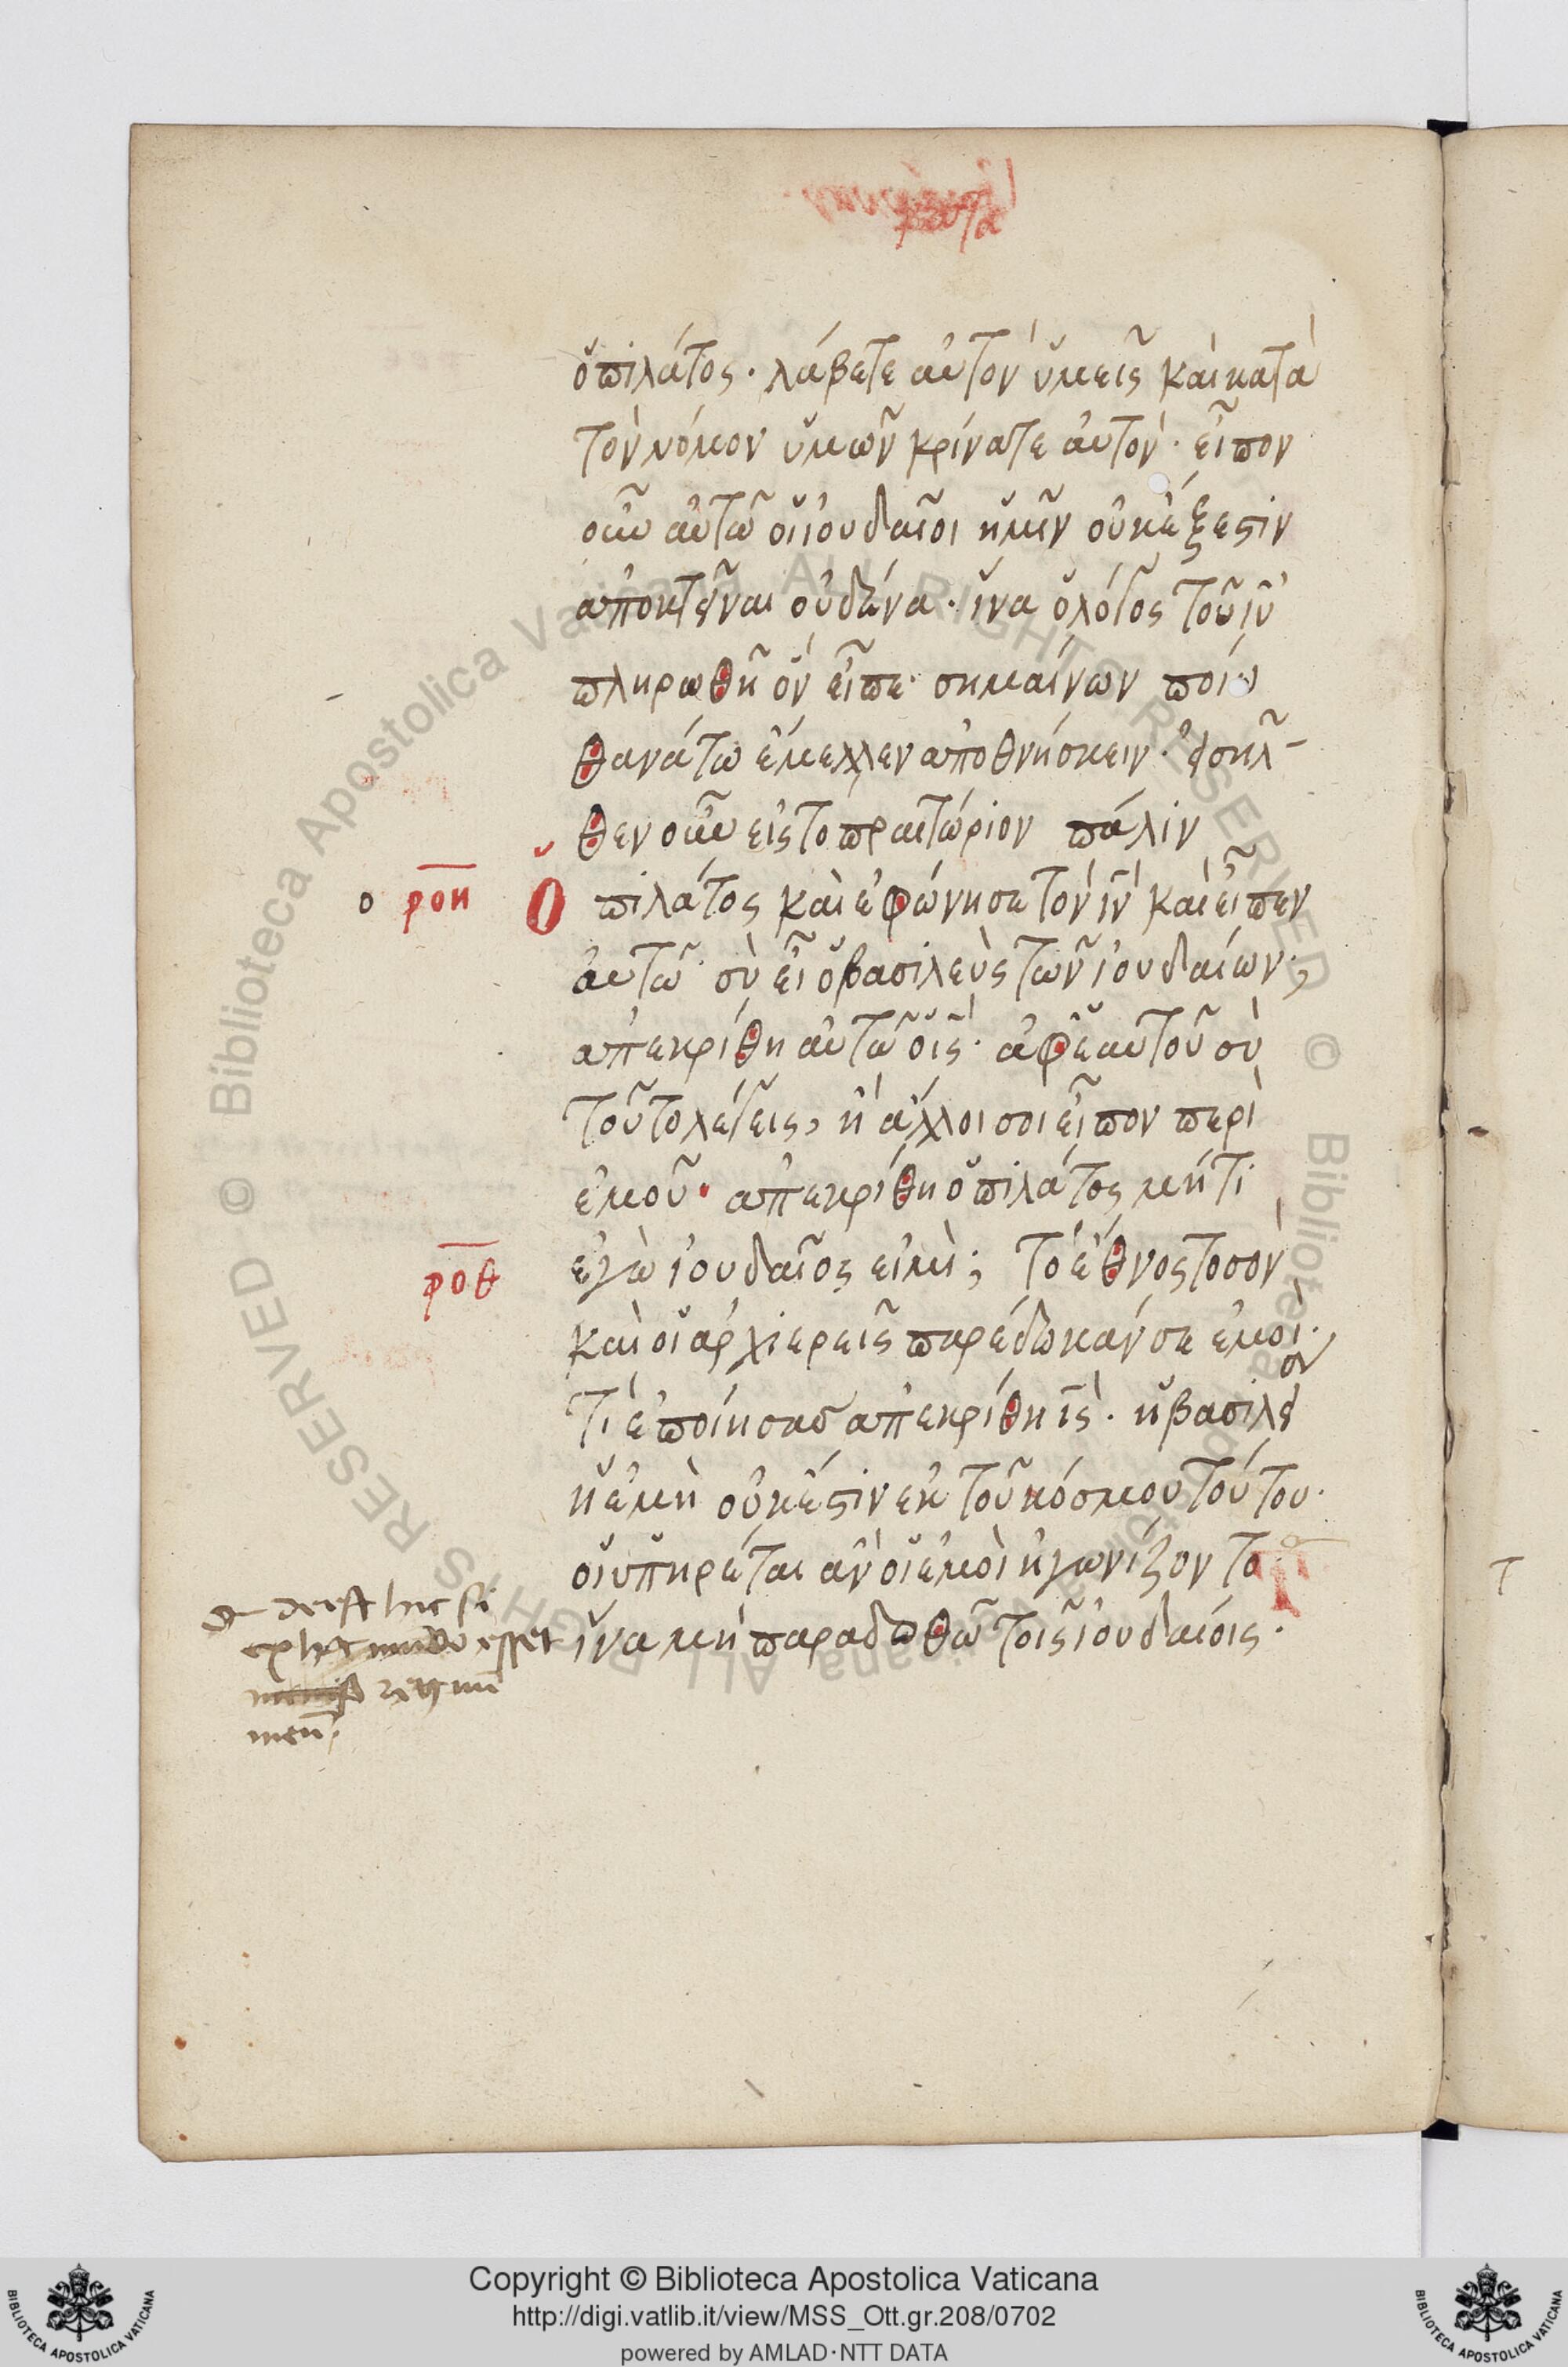 ὁ πιλάτος· λάβετε αὐτὸν ὑμεῖς καὶ κατὰ
τὸν νόμον ὑμῶν κρίνατε αὐτόν· εἶπον
οὖν αὐτῶ οἱ ἰουδαῖοι ἡμῖν οὐκ έξεστιν
ἀποκτεῖναι οὐδένα· ἵνα ὁ λόγος τοῦ ἰῦ
πληρωθῆ ὃν εἶπε· σημαίνων ποίω
θανάτω ἔμελλεν ἀποθνήσκειν· εἰσῆλ-
θεν οὖν εἰς το πραιτώριον πάλιν
ο ροη Ὁ πιλάτος καὶ ἐφώνησε τὸν ἰν καὶ εἶπεν
αὐτῶ· σὺ εἶ ὁ βασιλεὺς τῶν ἰουδαίων;
ἀπεκρίθη αὐτῶ ὁ ις· ἀφ' ἑαυτοῦ σὺ
τοῦτο λέγεις, ἢ ἄλλοι σοι εἶπον περὶ
ἐμοῦ· ἀπεκρίθη ὁ πιλάτος μήτι
ροθ ἐγὼ ἰουδαῖος εἰμὶ; τὸ ἔθνος το σὸν
καὶ οἱ ἀρχιερεῖς παρέδωκάν σε ἐμοὶ·
τὶ ἐποίησασ ἀπεκρίθη ις· ἡ βασιλεί
ἡ ἐμὴ οὐκ έστιν ἐκ τοῦ κόσμου τούτου·
οἱ ὑπηρέται ἂν οἱ ἐμοὶ ἠγωνίζοντο
ἵνα μὴ παραδωθῶ τοῖς ἰουδαίοις·
deest hic si
ex hoc mundo esset
regnum
meum
Copyright © Biblioteca Apostolica Vaticana
http://digi.vatlib.it/view/MSS_Ott.gr.208/0702
powered by AMLAD·NTT DATA
BIBLIOTECA APOSTOLICA VATICANA
BIBLIOTECA APOSTOLICA VATICANA